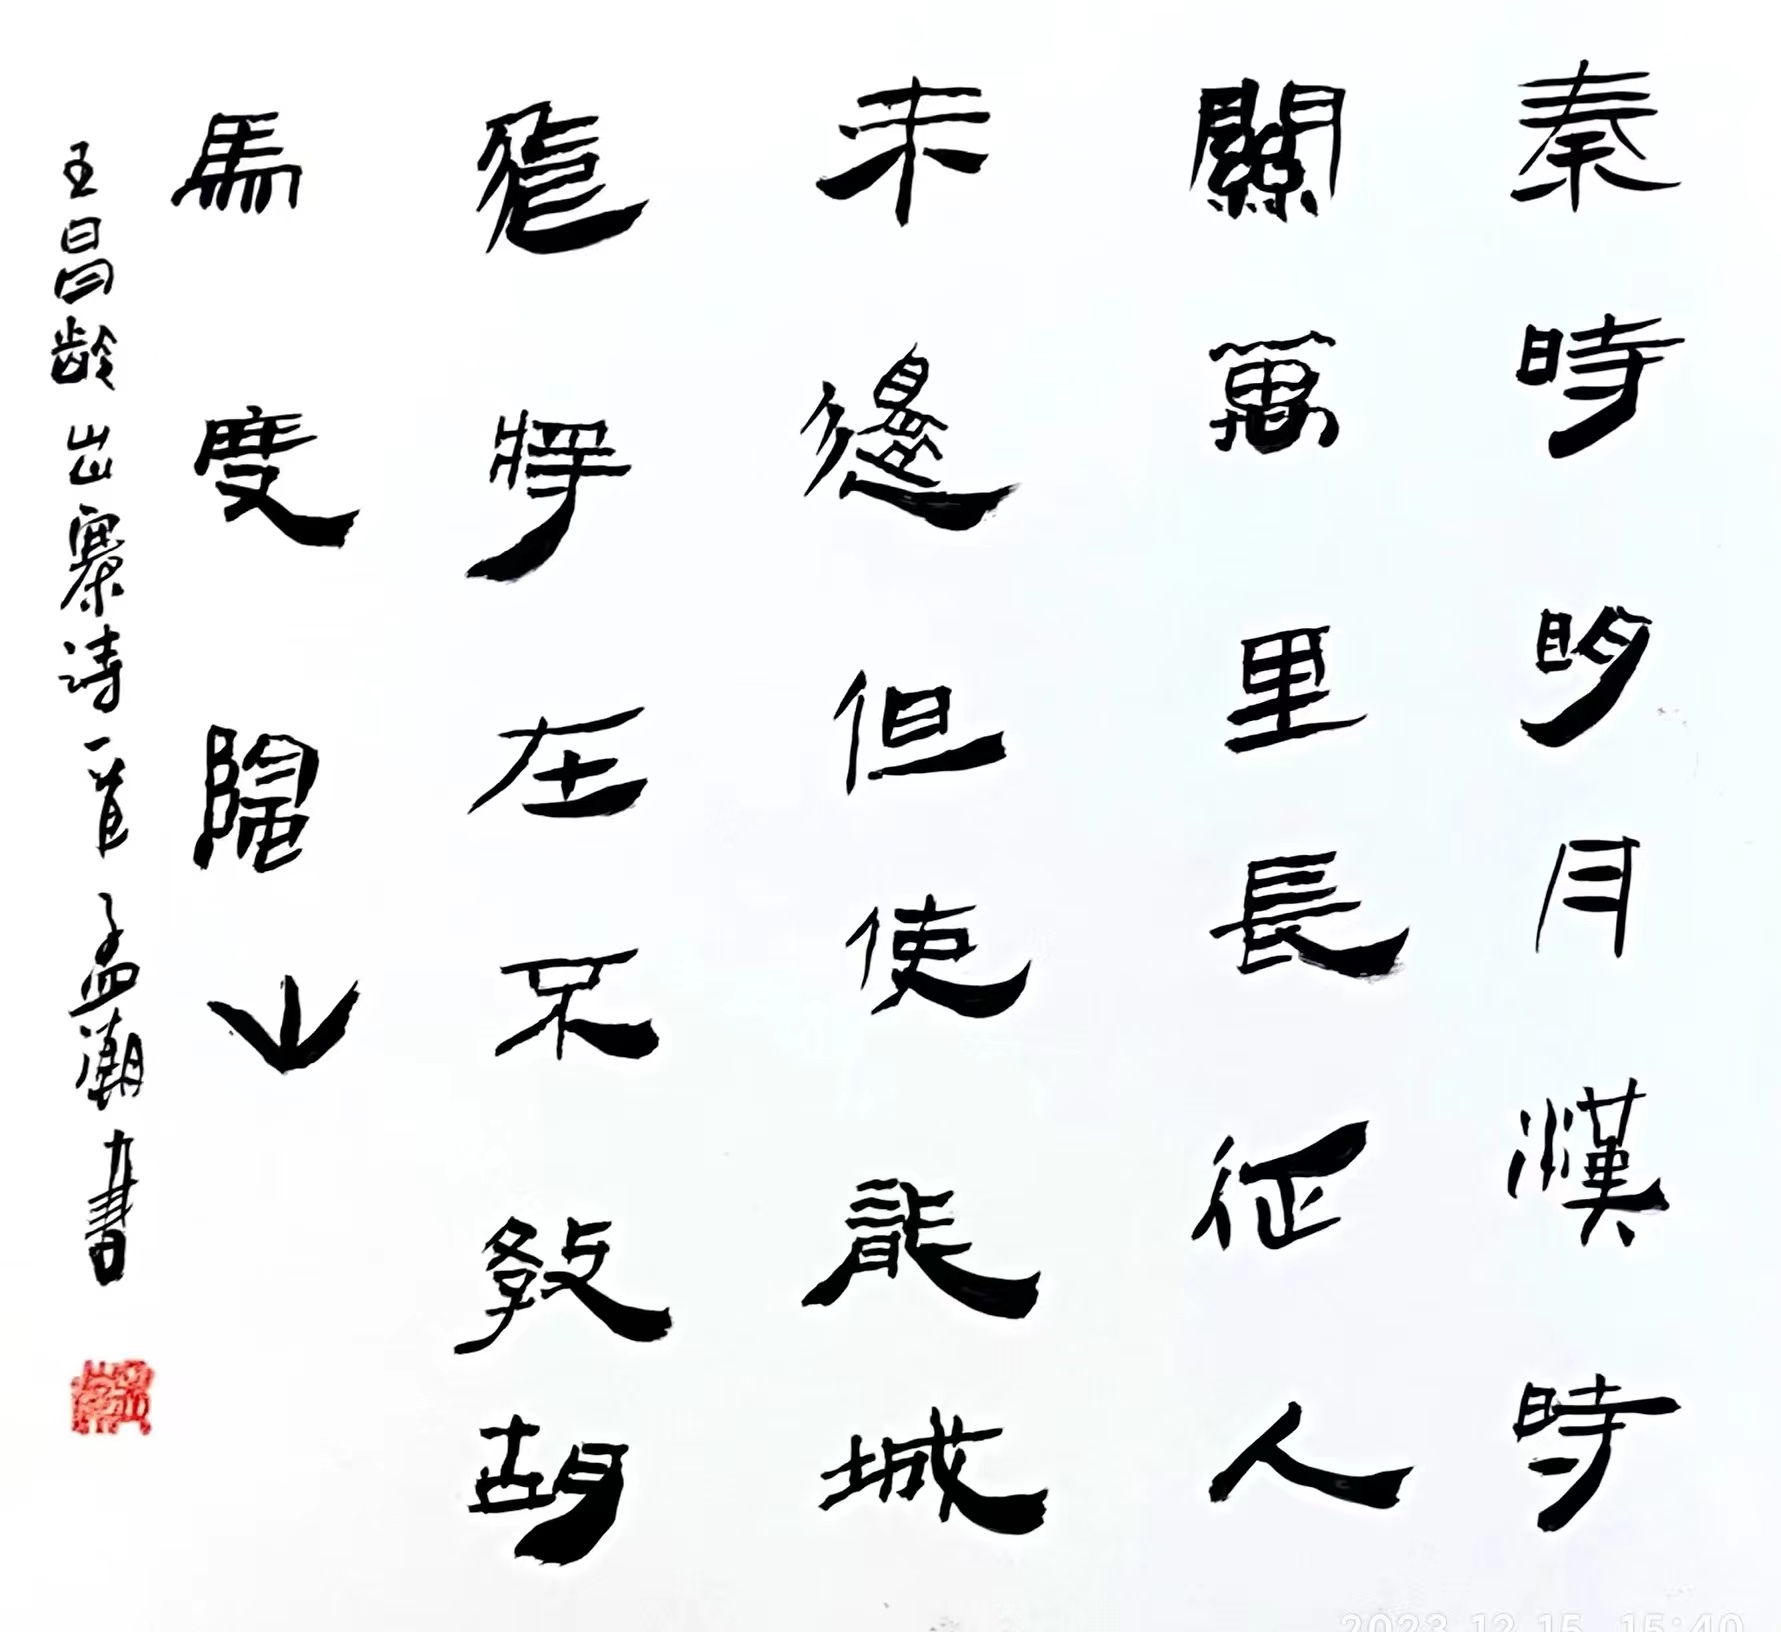 秦時明月漢時
關萬里長征人
未還但使龍城
飛將在不教胡
馬度陰山
王昌齡出塞诗一首 孟潮書
2023.12.15 15:40